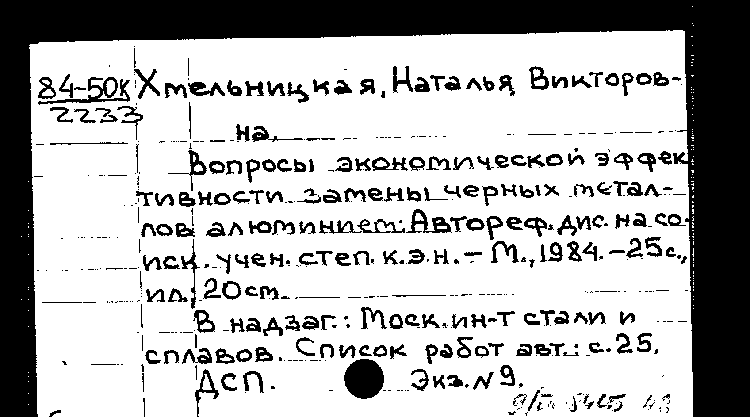 84-50к Хмельницкая, Наталья Викторов-
2233
на.
Вопросы экономической эффек
тивности замены черных метал-
лов алюминием: Автореф. дис. на со-
иск. учен. степ. к.э.н. – М., 1984. – 25 с.,
ил.; 20 см.
В надзаг.: Моск. ин-т стали и
сплавов. Список работ авт.: с. 25.
ДСП. Экз. № 9.